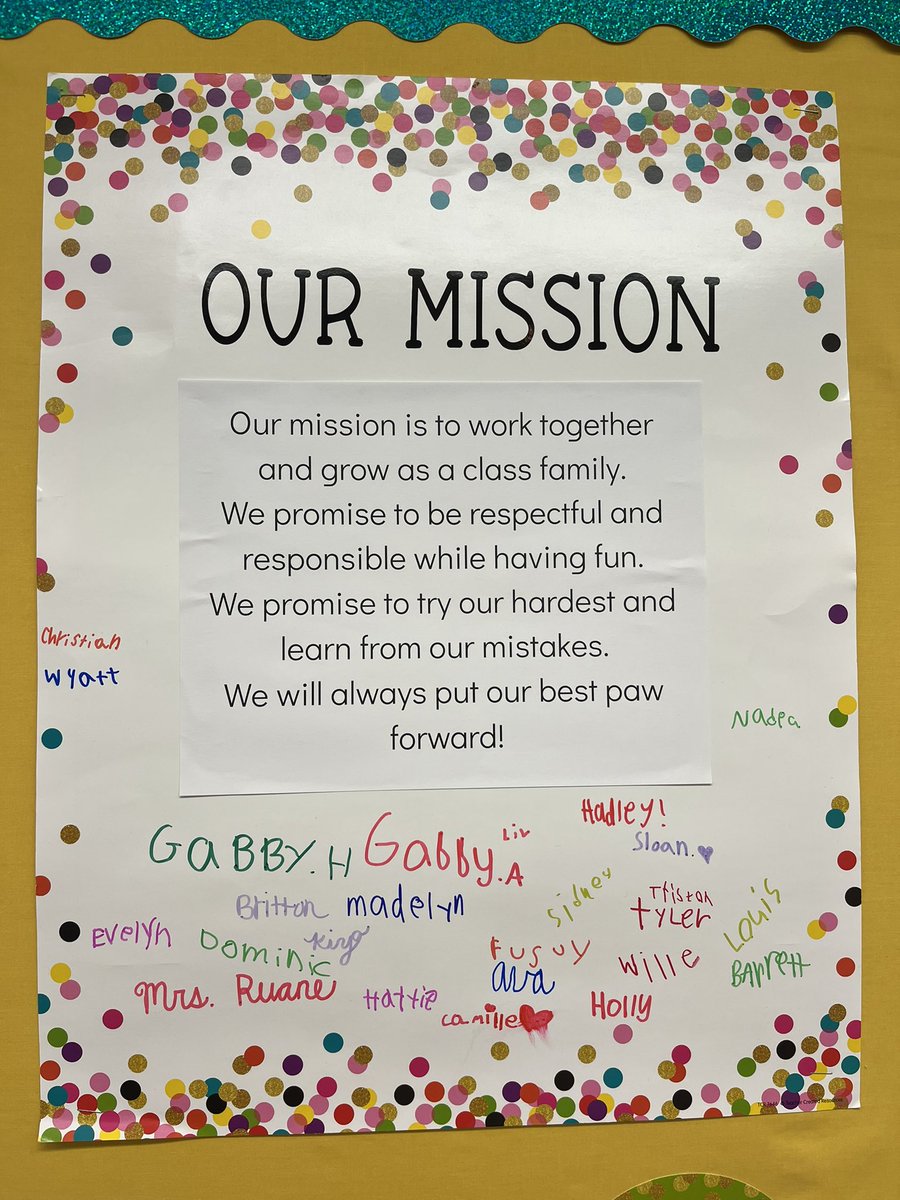 OUR MISSION
Our mission is to work together
and grow as a class family.
We promise to be respectful and
responsible while having fun.
We promise to try our hardest and
learn from our mistakes.
We will always put our best paw
forward!
Christian
Wyatt
Nadea
Hadley!
Liv
GaBBY.H Gabby.A
Sloan.
Sidney
Tristan
Britton madelyn
tyler
Louis
Evelyn
Dominic
King
Fuguy
Wille
BArrett
ava
Mrs. Ruane
Hattie
Holly
camille